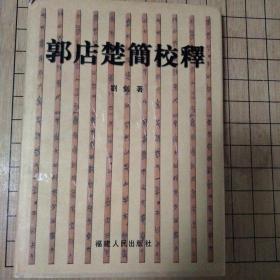 郭店楚簡校釋
劉釗 著
福建人民出版社